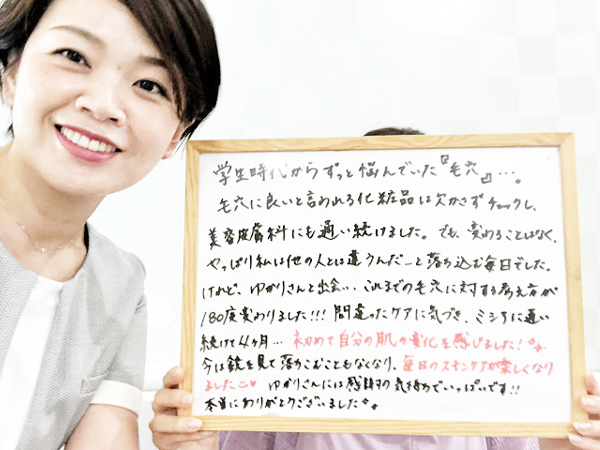 学生時代からずっと悩んでいた『毛穴』…。
毛穴に良いと言われる化粧品は欠かさずチェックし、
美容皮膚科にも通い続けました。でも、変わることはなく、
やっぱり私は他の人とは違うんだ…と落ち込む毎日でした。
けれど、ゆかりさんと出会い…これまでの毛穴に対する考え方が
180度変わりました!!! 間違ったケアに気づき、ミシアに通い
続けて4ヶ月… 初めて自分の肌の変化を感じました!
今は鏡を見て落ちこむこともなくなり、毎日のスキンケアが楽しくなり
ました♡ ゆかりさんには感謝の気持ちでいっぱいです!!
本当にありがとうございました